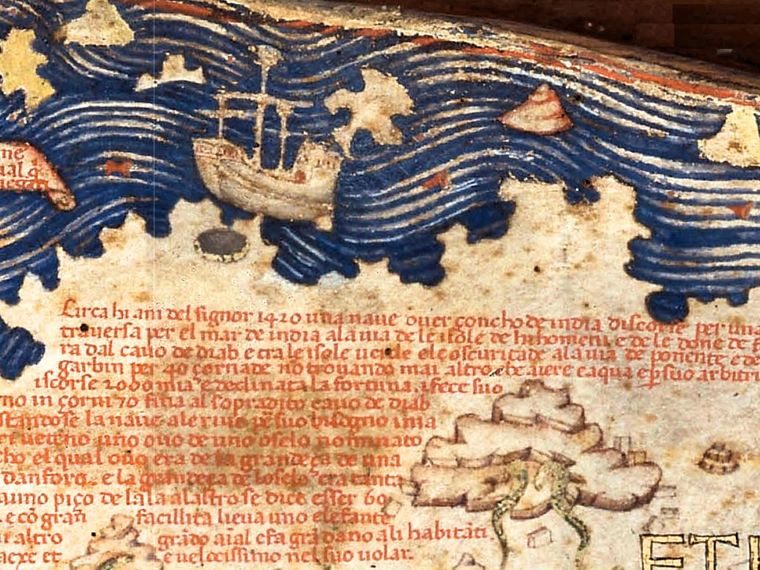 ne
ual q
Circa hi ani del signor 1420 una naue ouer çoncho de india discorse per una
trauersa per el mar de india a la uia de le isole de hi homeni e de le done de f
ra dal cauo de diab e tra le isole uerde e le oscuritade a la uia de ponente e de
garbin per 40 çornade no trouando mai altro che aiere e aqua e per suo arbitri
iscorse 2000 mia e declinata la fortuna i fece suo
rno in çorni 70 fina al sopradito cauo de diab
standose la naue a le riue per suo bisogno i ma
e i ueteno uno ouo de uno oselo nominato
cho el qual ouo era de la grandeça de una
danfora e la grandeça de loselo era tanta
auno piço de lala a laltro se dice esser 60
e cõ gran facillita lieua uno elefante
altro grãdo aial e fa grã dano a li habitãti
et e uelocissimo nel suo uolar.
ETH